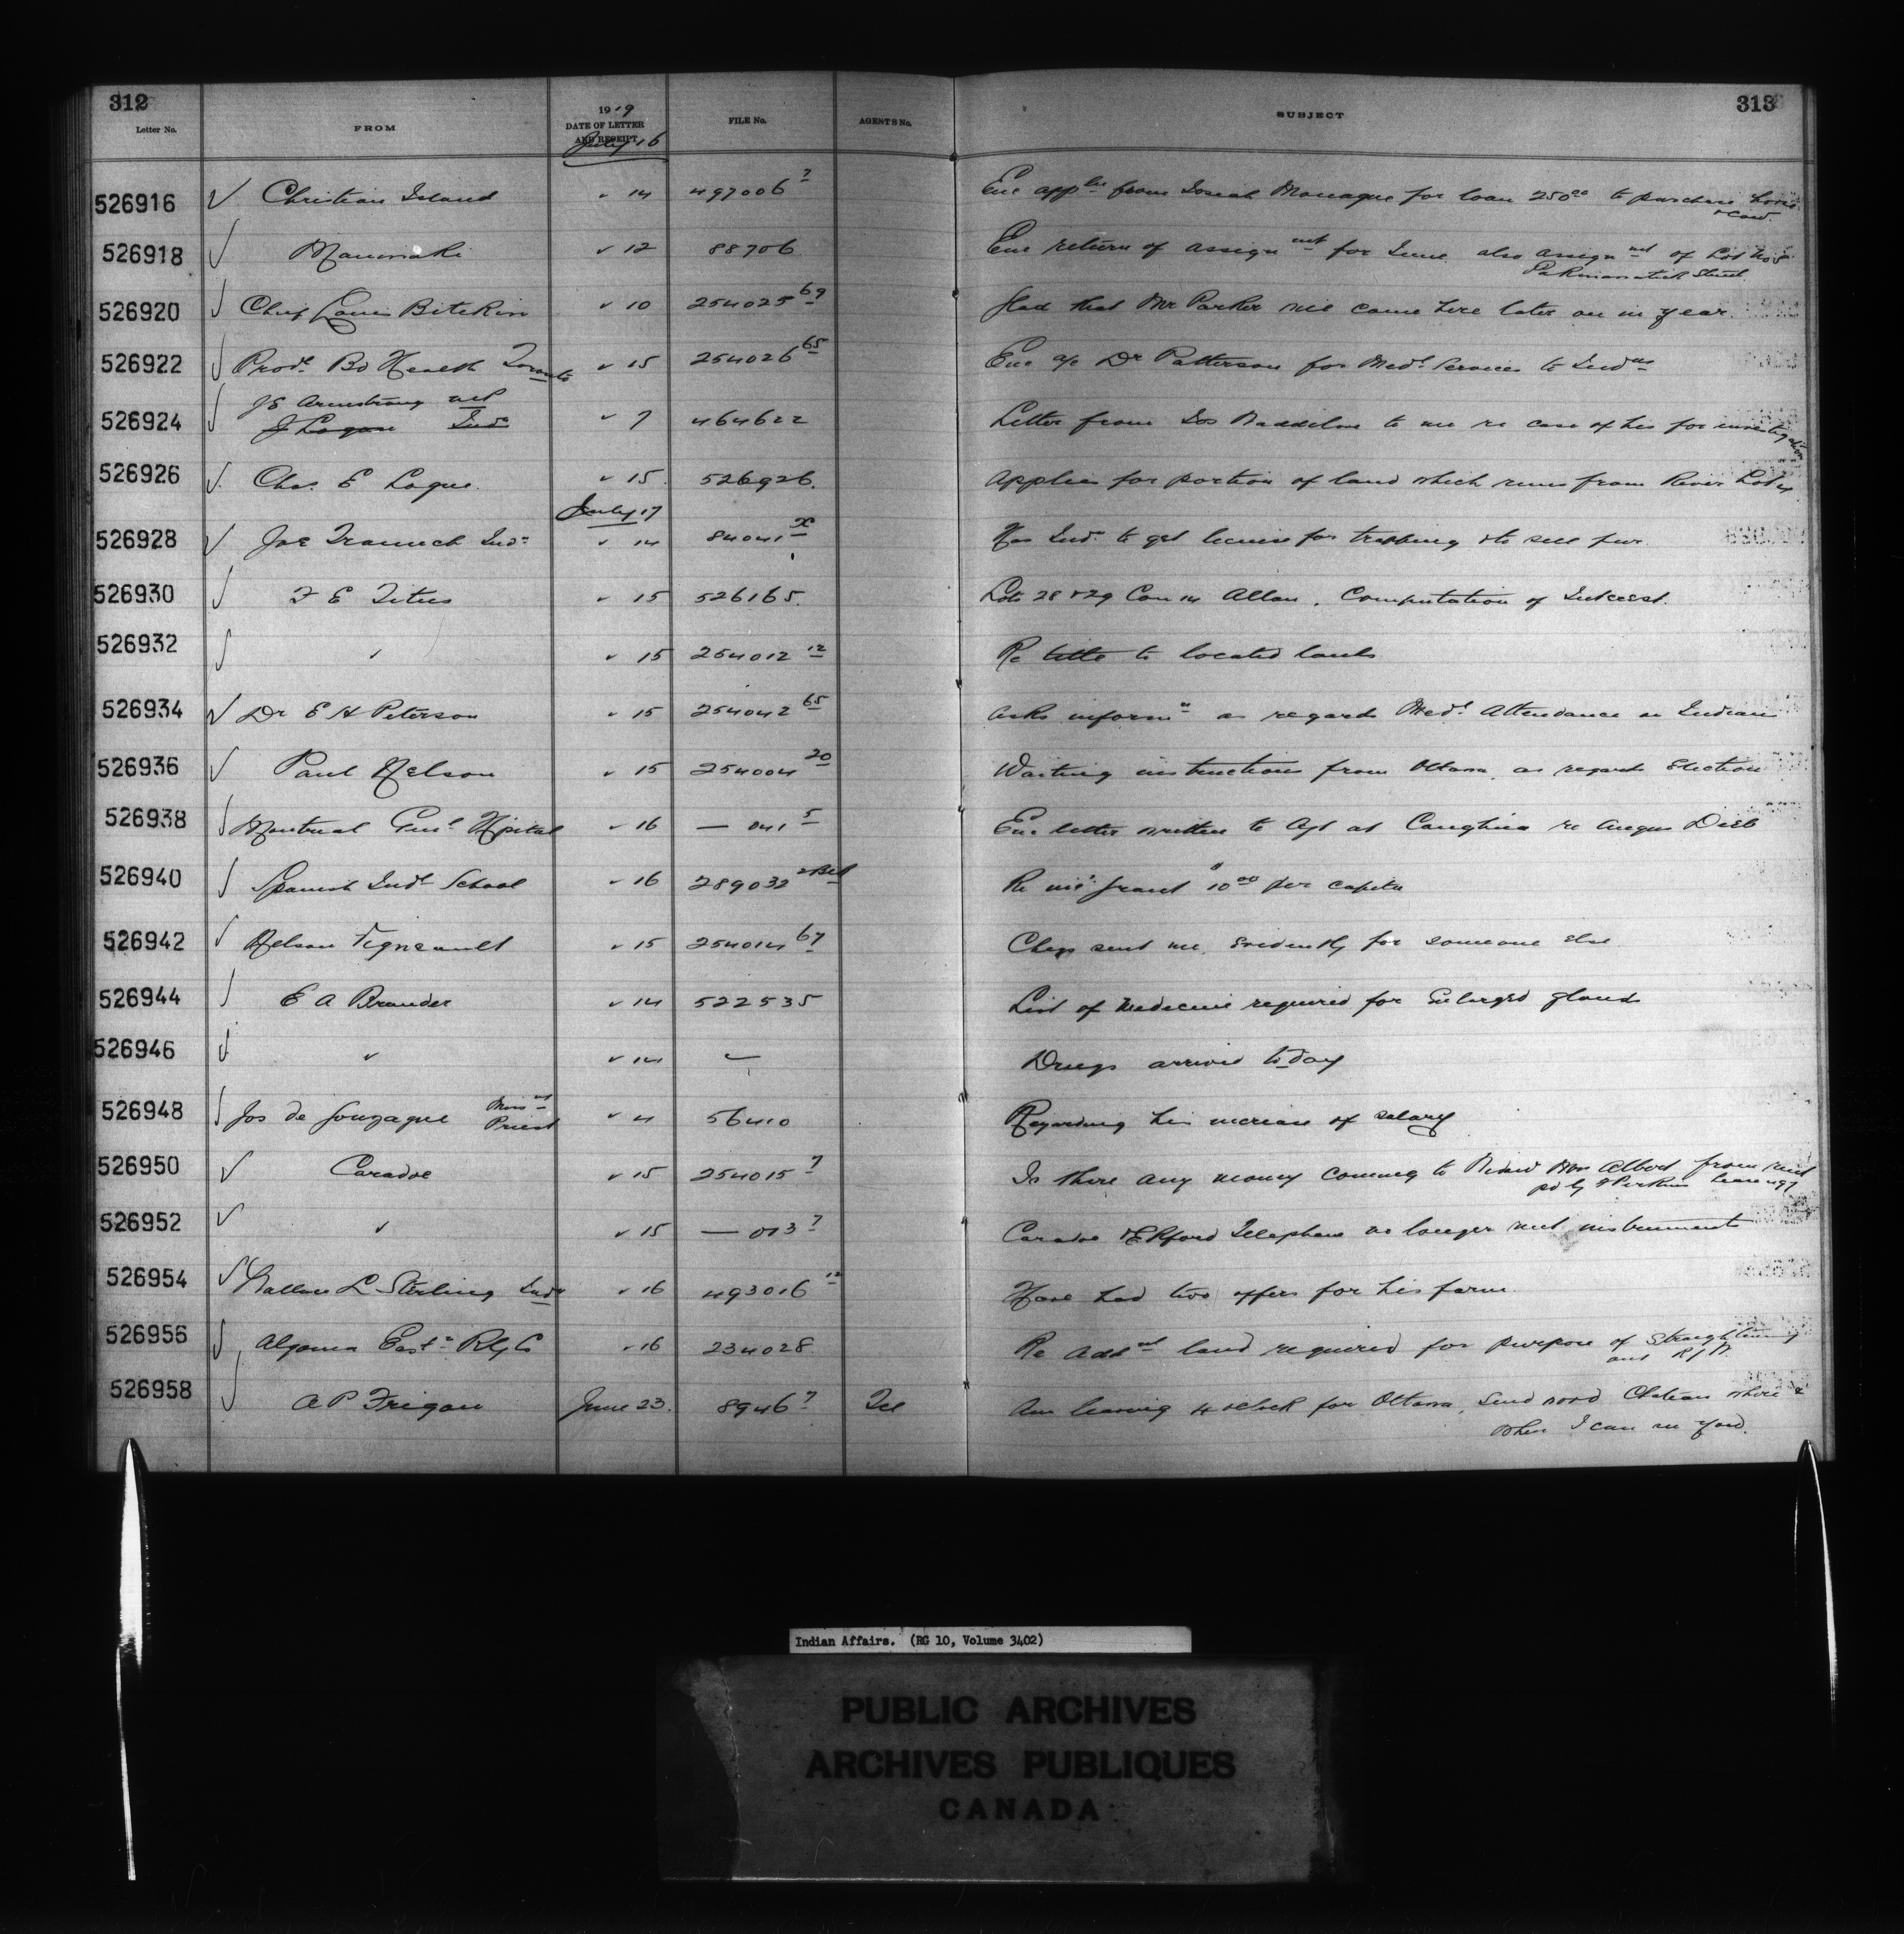 312
313
Letter No. FROM 1919 DATE OF LETTER AND RECEIPT FILE No. AGENTS No. SUBJECT
July 16
526916 √ Christian Island " 14 497006 7 Enc appln from Monague for loan 250 00 to purchase horse
& cow.
526918 √ Maniwaki " 12 88706 Enc return of assignmt for June also assignmt of Lot No 5
Street
526920 √ Chief Louis " 10 254025 69 Glad that Mr Parker will come here later on in year
526922 √ Provl Bd Health Toronto " 15 254026 65 Enc a/c Dr Patterson for Medl Services to Indns
526924 √ J E Armstrong
J Logan Indn " 7 464622 Letter from to me re case of his for investigation
526926 √ Chas. E Logue " 15 526926. Applies for portion of land which runs from River
July 17
526928 √ Joe Indn " 14 84041 x Has Indn to get license for trapping & to sell fur.
526930 √ F E Titus " 15 526165. Lots 28 & 29 Con 14 Allan. Computation of Interest.
526932 √ " " 15 254012 12 Re title to located lands
526934 √ Dr E H Peterson " 15 254042 65 Asks informn as regards Medl Attendance on Indians
526936 √ Paul Nelson " 15 254004 20 Waiting instructions from Ottawa, as regards Election
526938 √ Montreal Genl Hospital " 16 — 041 5 Enc letter written to Agt at re Angus
526940 √ Spanish Indl School " 16 289032 Re Grant $10 00 per capita
526942 √ Nelson Vigneault " 15 254014 67 sent me, Evidently for someone else
526944 √ E A Brander " 14 522535 List of Medecine required for Enlarged glands
526946 √ " " 14 — Drugs arrived to day
526948 √ Jos de Gonzague
Priest " 4 56410 Regarding his increase of salary
526950 √ Caradoc " 15 254015 7 Is there any money coming to Mrs Albert from rent
pd by Perkins lease
526952 √ " " 15 — 013 7 Caradoc & Ekford Telephone no longer instruments
526954 √ Wallace L Sterling Indn " 16 493016 12 Have had two offers for his farm
526956 √ Algoma Eastn Rly Co " 16 234028 Re Addnl land required for purpose of Straightening
526958 √ A P Frigon June 23. 8946 7 Tel Am leaving 4 oclock for Ottawa, Send word Chateau where &
when I can see you.
Indian Affairs. (RG 10, Volume 3402)
PUBLIC ARCHIVES
ARCHIVES PUBLIQUES
CANADA